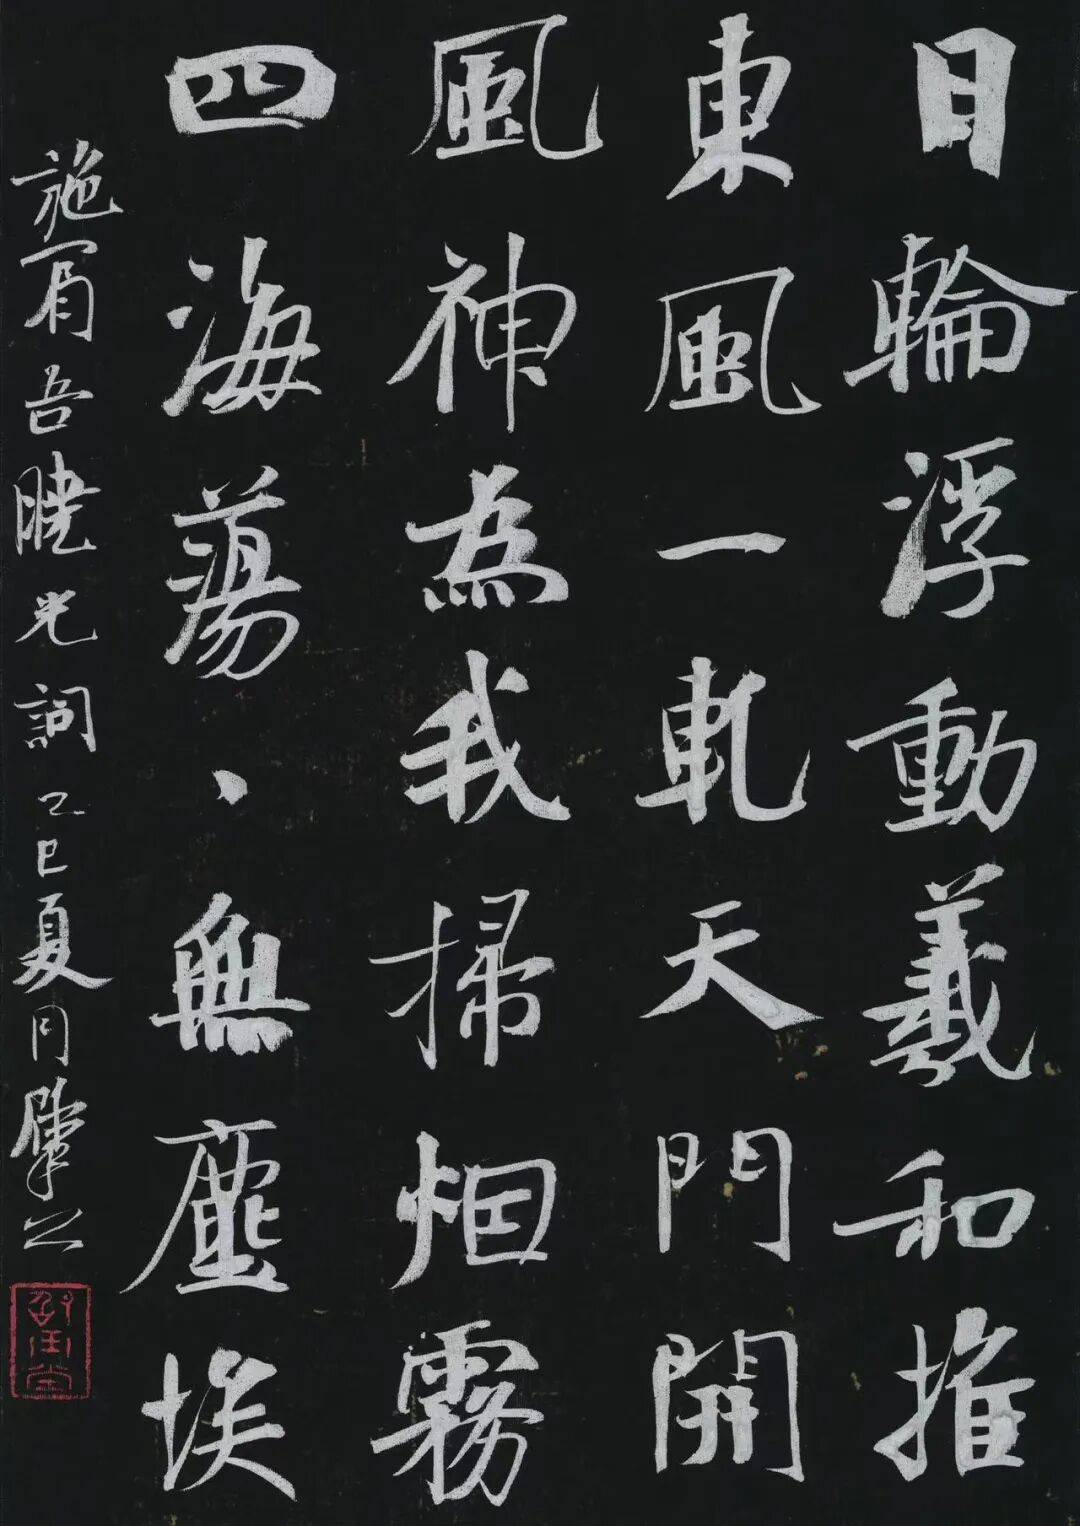 日輪浮動羲和推
東風一軋天門開
風神為我掃烟霧
四海蕩、無塵埃
施肩吾曉光詞乙巳夏月肇公